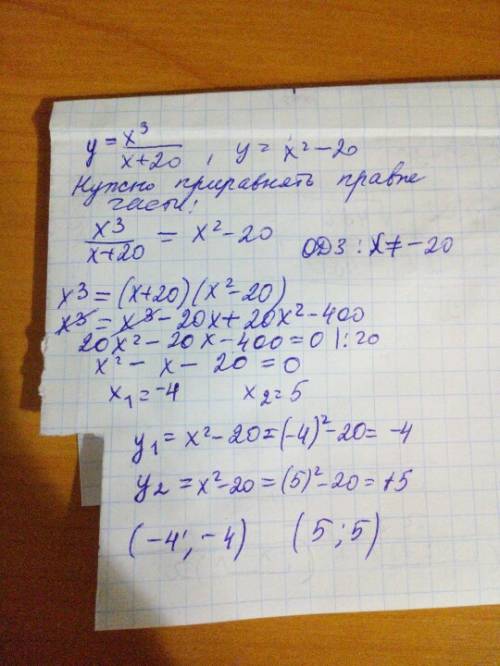 y = x³/(x+20) , y = x² – 20
Нужно приравнять правые
части:
x³/(x+20) = x² – 20 ОДЗ : x ≠ – 20
x³ = (x+20)(x² – 20)
x³ = x³ – 20x + 20x² – 400
20x² – 20x – 400 = 0 |: 20
x² – x – 20 = 0
x₁ = –4 x₂ = 5
y₁ = x² – 20 = (–4)² – 20 = –4
y₂ = x² – 20 = (5)² – 20 = +5
(–4; –4) (5; 5)